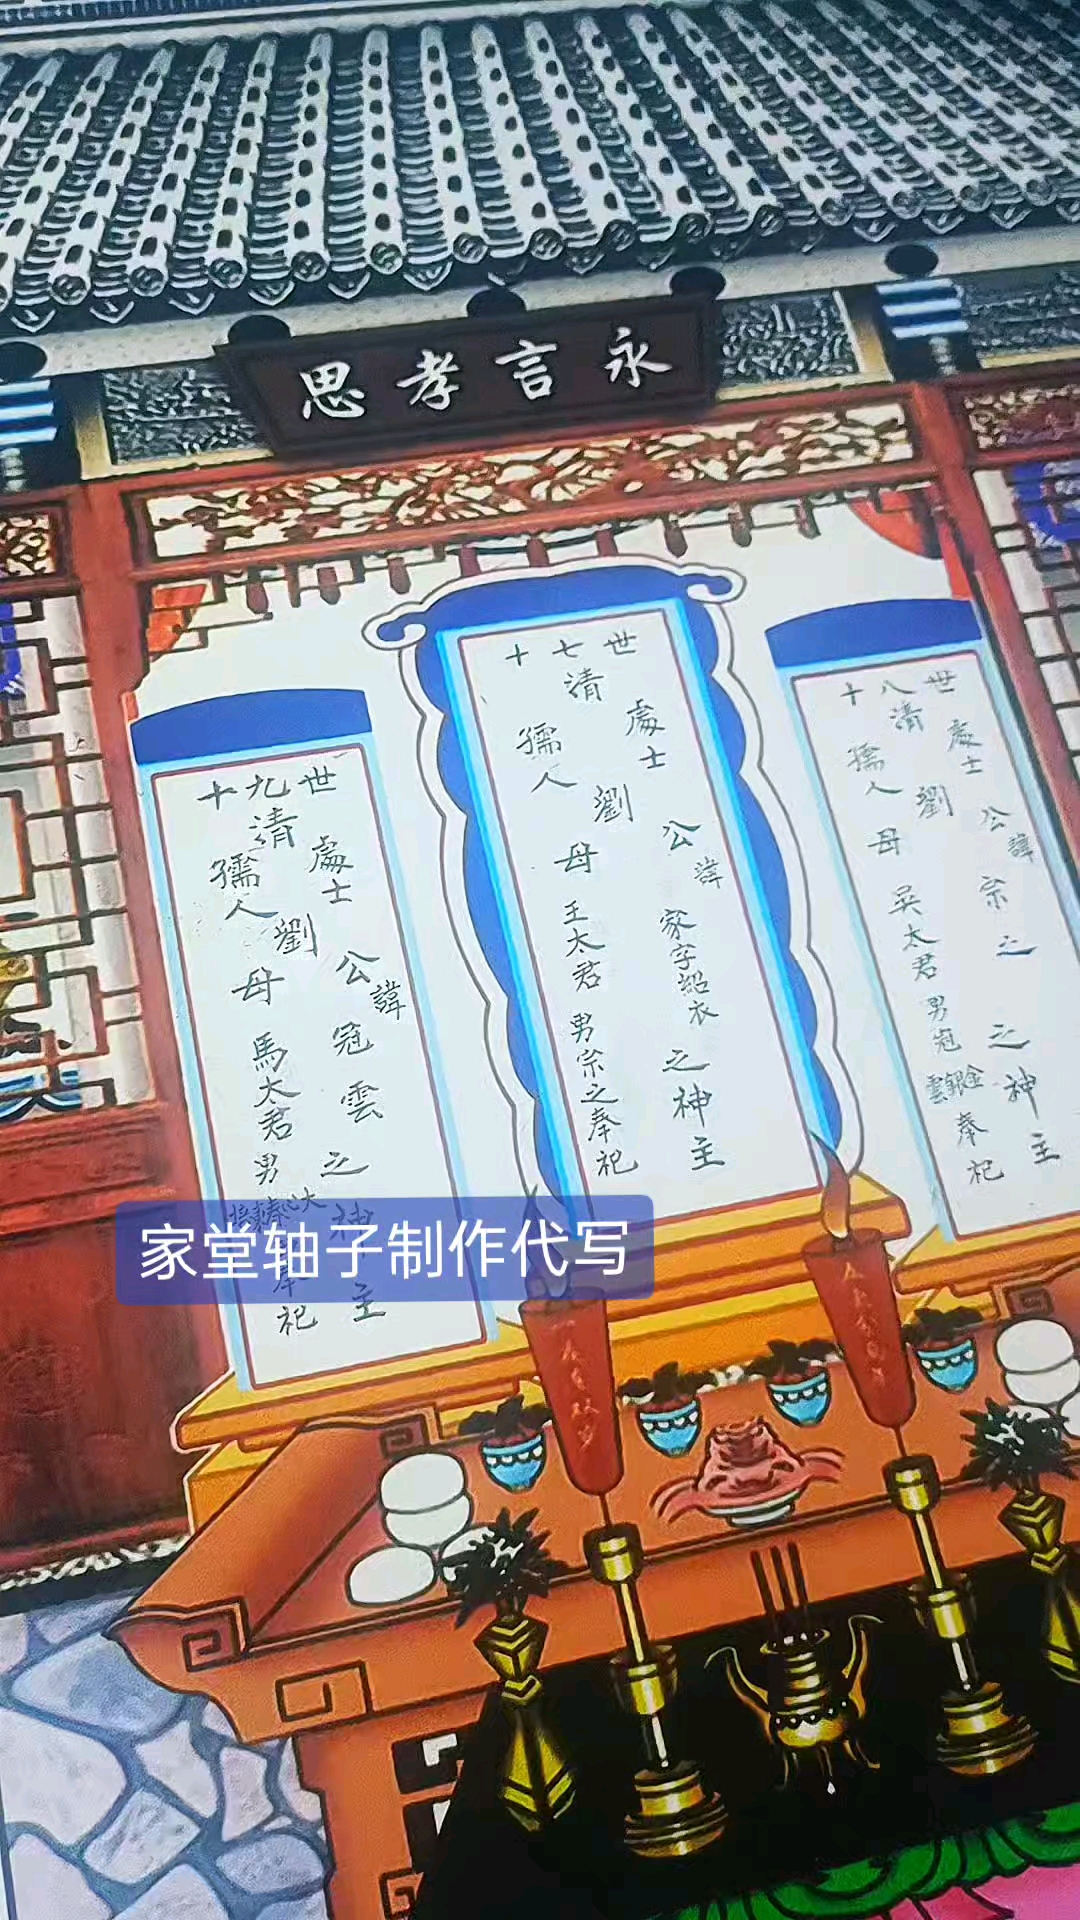 永言孝思
十七世
清
處士
劉
公諱家字紹衣之神主
孺人
母王太君
男宗之奉祀
十八世
清
處士
劉
公諱宗之之神主
孺人
母吳太君
男冠
金銀雲
奉祀
十九世
清
處士
劉
公諱冠雲之神主
孺人
母馬太君
男
奉祀
家堂轴子制作代写